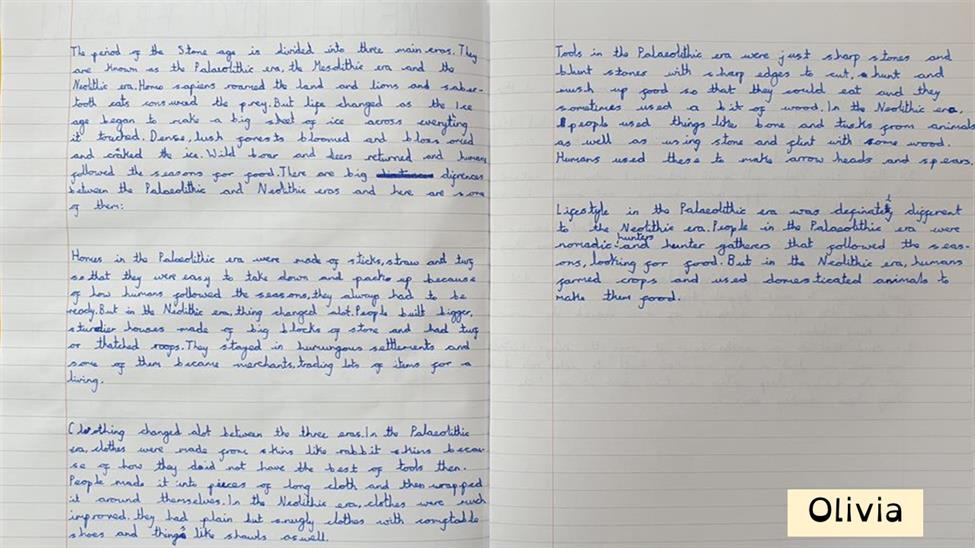 The period of the Stone age is divided into three main eras. They
are known as the Palaeolithic era, the Mesolithic era and the
Neolithic era. Homo sapiens roamed the land and lions and saber-
tooth cats consumed the prey. But life changed as the Ice
age began to make a big sheet of ice across everything
it touched. Dense, lush forests bloomed and
and craked the ice. Wild boar and deers returned and humans
followed the seasons for food. There are big difrences
between the Palaeolithic and Neolithic eras and here are some
of them:
Homes in the Palaeolithic era were made of sticks, straw and turf
so that they were easy to take down and pack up because
of how humans followed the seasons, they always had to be
ready. But in the Neolithic era, thing changed alot. People built bigger,
sturdier houses made of big blocks of stone and had turf
or thatched roofs. They stayed in humungous settlements and
some of them became merchants, trading lots of items for a
living.
Clothing changed alot between the three eras. In the Palaeolithic
era, clothes were made from skins like rabbit skins becau-
se of how they did not have the best of tools then.
People made it into pieces of long cloth and then wrapped
it around themselves. In the Neolithic era, clothes were much
improved, they had plain but snugly clothes with comftable
shoes and things like shawls aswell.
Tools in the Palaeolithic era were just sharp stones and
blunt stones with sharp edges to cut, hunt and
mush up food so that they could eat and they
sometimes used a bit of wood. In the Neolithic era,
people used things like bone and tusks from animals
as well as using stone and flint with some wood.
Humans used these to make arrow heads and spears.
Lifestyle in the Palaeolithic era was definately different
to the Neolithic era. People in the Palaeolithic era were
nomadic hunters and hunter gatherers that followed the seas-
ons, looking for food. But in the Neolithic era, humans
farmed crops and used domesticated animals to
make them food.
Olivia